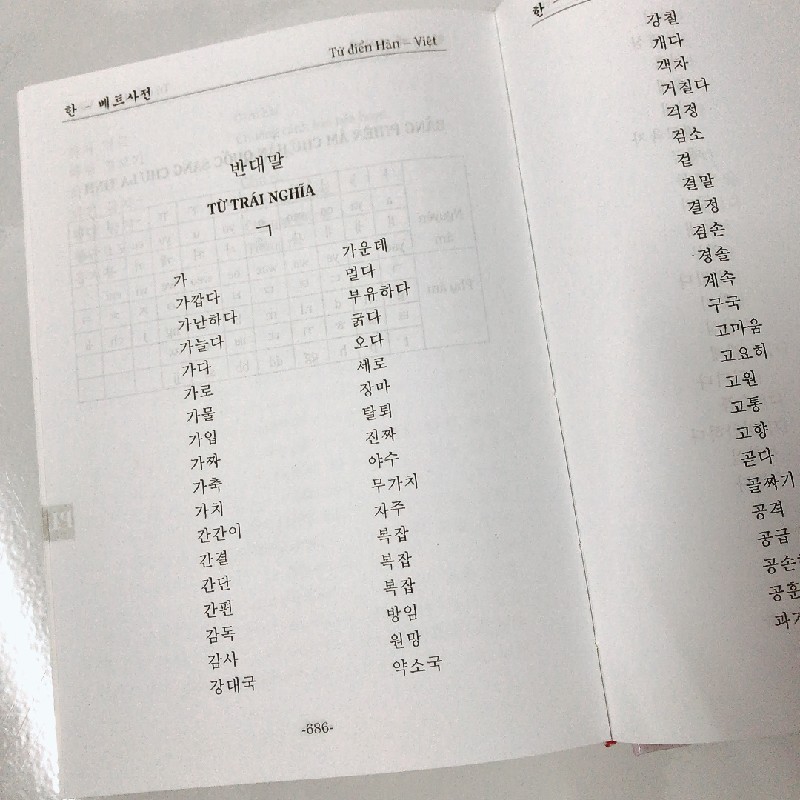 한 - 베트사전
Từ điển Hàn - Việt
반대말
TỪ TRÁI NGHĨA
ㄱ
가 가운데
가깝다 멀다
가난하다 부유하다
가늘다 굵다
가다 오다
가로 세로
가물 장마
가입 탈퇴
가짜 진짜
가축 야수
가치 무가치
간간이 자주
간결 복잡
간단 복잡
간편 복잡
감독 방임
감사 원망
강대국 약소국
-686-
한 -
개다
거칠다
걱정
검소
겉
결말
결정
겸손
경솔
계속
고마움
고요히
고원
고통
고향
곧다
골짜기
공격
공급
공손
공훈